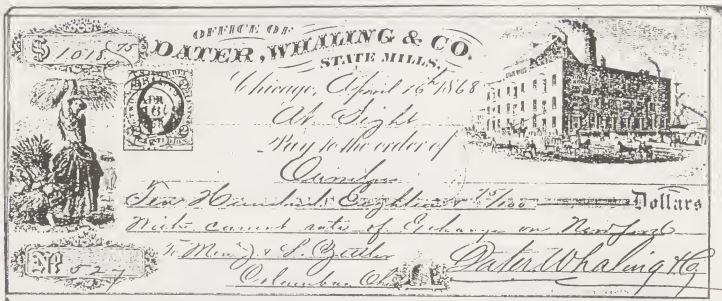 OFFICE OF
$ 1018.75
DATER, WHALING & CO.
STATE MILLS,
Chicago, April 16th 1868
APR 16
At Sight
Pay to the order of
Ten Hundred Eighteen & 75/100 Dollars
With current rate of Exchange on New York
To Mess J. & L. Zettler
No 527
Columbus Ohio
Dater Whaling & Co